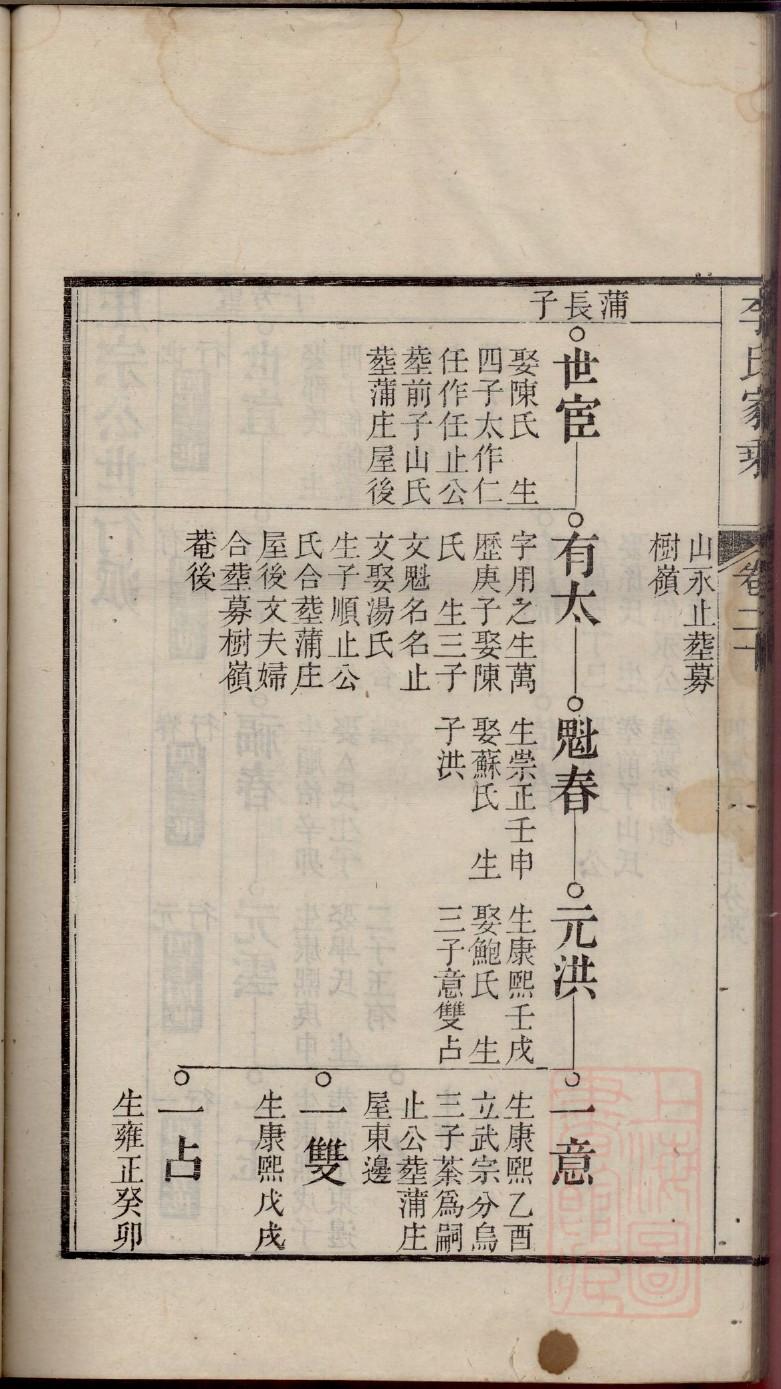 李氏家乘
卷二十
山永止塟募
樹嶺
蒲長子
世宦
娶陳氏　生
四子太作仁
任作任止公
塟前子山氏
塟蒲庄屋後
有太
字用之生萬
歷庚子娶陳
氏　生三子
文魁名名止
文娶湯氏
生子順止公
氏合塟蒲庄
屋後文夫婦
合塟募樹嶺
菴後
魁春
生崇正壬申
娶蘇氏　生
子洪
元洪
生康熙壬戌
娶鮑氏　生
三子意雙占
一意
生康熙乙酉
立武宗分烏
三子茶爲嗣
止公塟蒲庄
屋東邊
一雙
生康熙戊戌
一占
生雍正癸卯